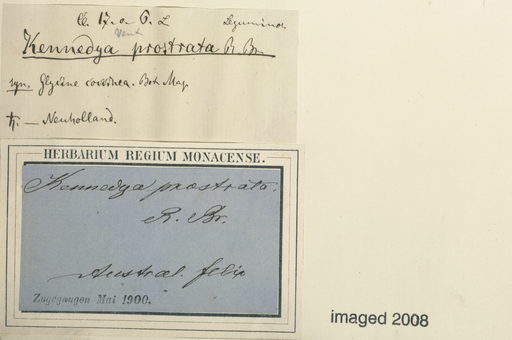 Cl. 17. a 6. L Leguminos.
Vent
Kennedya prostrata R. Br.
syn. Glycine coccinea. Bot Mag.
ђ. — Neuholland.
HERBARIUM REGIUM MONACENSE.
Kennedya prostrata.
R. Br.
Austral. felix
Zugegangen Mai 1900.
imaged 2008